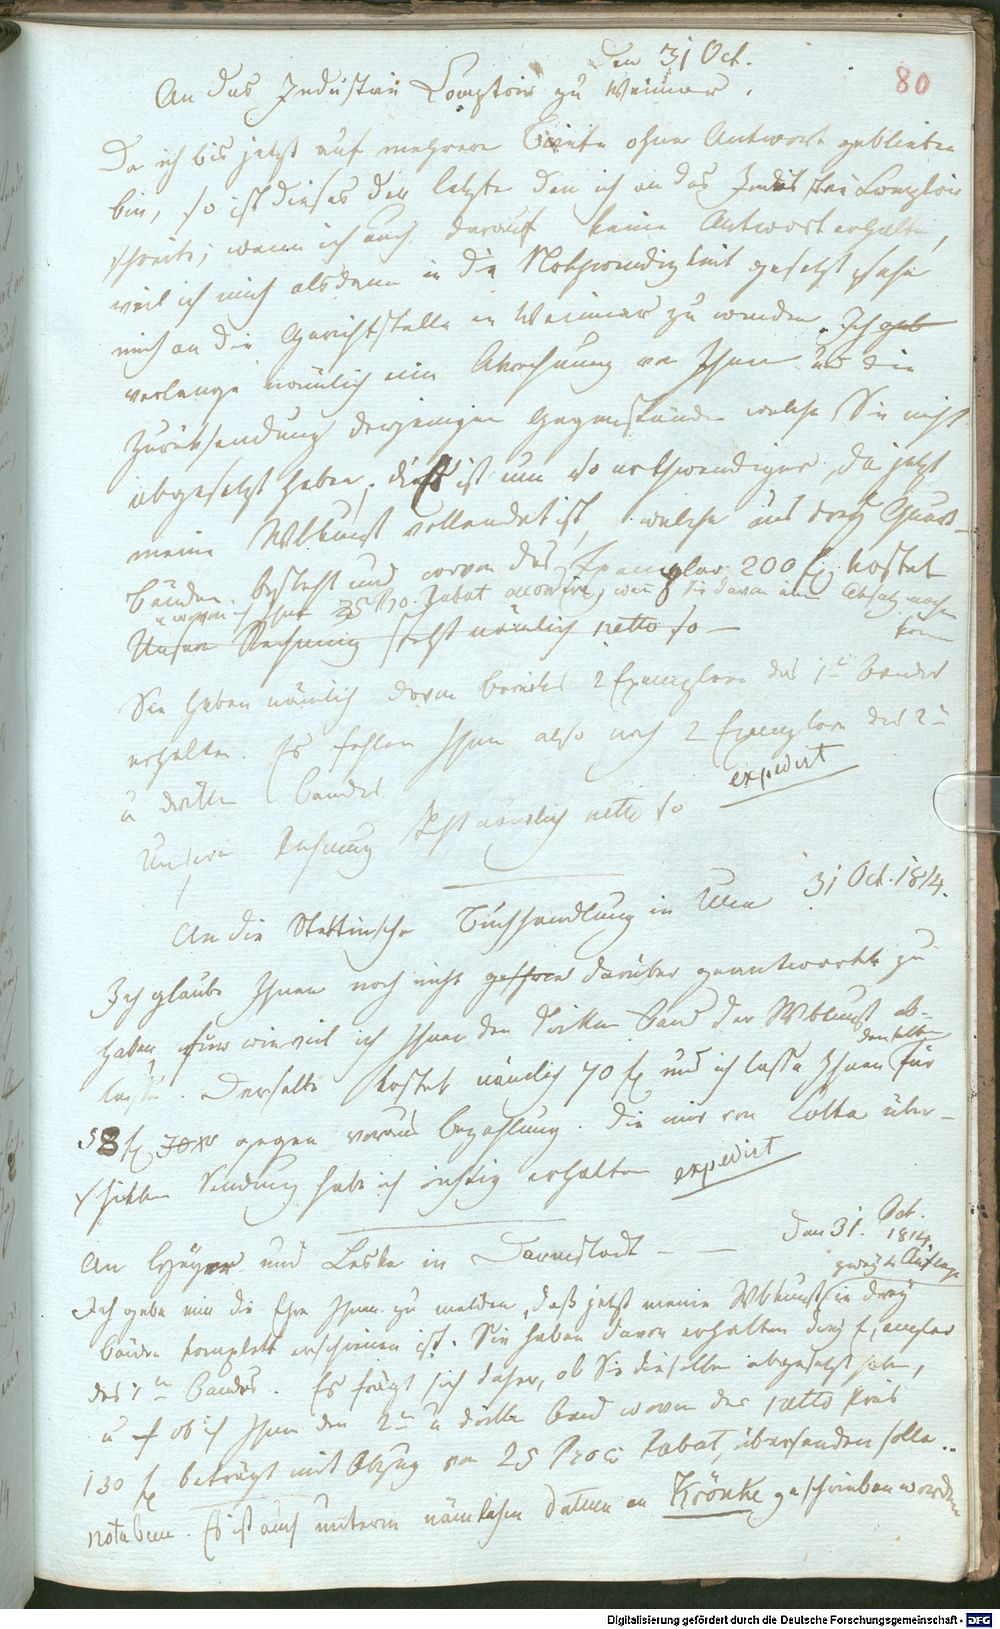 Den 31 Oct.
80
An das Industrie Comptoir zu Weimar.
Da ich bis jetzt auf mehrere Briefe ohne Antwort geblieben
bin, so ist dieses der letzte den ich an das Industrie Comptoir
schreibe; wenn ich auch darauf keine Antwort erhalte,
weil ich mich alsdann in die Nothwendigkeit gesetzt sehe
mich an die Gerichtstelle in Weimar zu wenden. Ich
verlange nämlich eine Abrechnung von Ihnen und die
Zurücksendung derjenigen Gegenstände welche Sie nicht
abgesetzt haben, dieß ist um so nothwendiger, da jetzt
meine Wbkunst vollendet ist, welche aus drey Quart-
bänden besteht und wovon das Exemplar 200 fl kostet
wovon ich Ihnen 25 Pro. Rabat accordire, wenn Sie davon einen Absatz machen
können
Unsere Rechnung steht nämlich netto so —
Sie haben nämlich davon bereits 2 Exemplare des 1n Bandes
erhalten. Es fehlen Ihnen also noch 2 Exemplare des 2n
u dritten Bandes
expedirt
Unsere Rechnung steht nämlich netto so
31 Oct. 1814.
An die Stettinsche Buchhandlung in Ulm
Ich glaube Ihnen noch nicht darüber geantwortet zu
haben, für wie viel ich Ihnen den dritten Band der Wbkunst ab-
denselben
lasse. Derselbe kostet nämlich 70 fl und ich lasse Ihnen für
58 fl gegen voraus bezahlung. Die mir von Cotta über-
schickte Sendung habe ich richtig erhalten expedirt
Den 31. Oct.
1814.
An Heyer und Leske in Darmstadt — —
zwey 4 Auflage
Ich gebe mir die Ehre Ihnen zu melden, daß jetzt meine Wbkunst in drey
bänden komplett erschienen ist. Sie haben davon erhalten drey Exemplar
des 1n Bandes. Es frägt sich daher, ob Sie dieselben abgesetzt haben,
u ob ich Ihnen den 2n u dritten Band wovon der netto Preis
130 fl beträgt mit Abzug von 25 Procent Rabat, übersenden solle..
notabene. Es ist auch unterm nämlichen Datum an Kröncke geschrieben worden
Digitalisierung gefördert durch die Deutsche Forschungsgemeinschaft - DFG